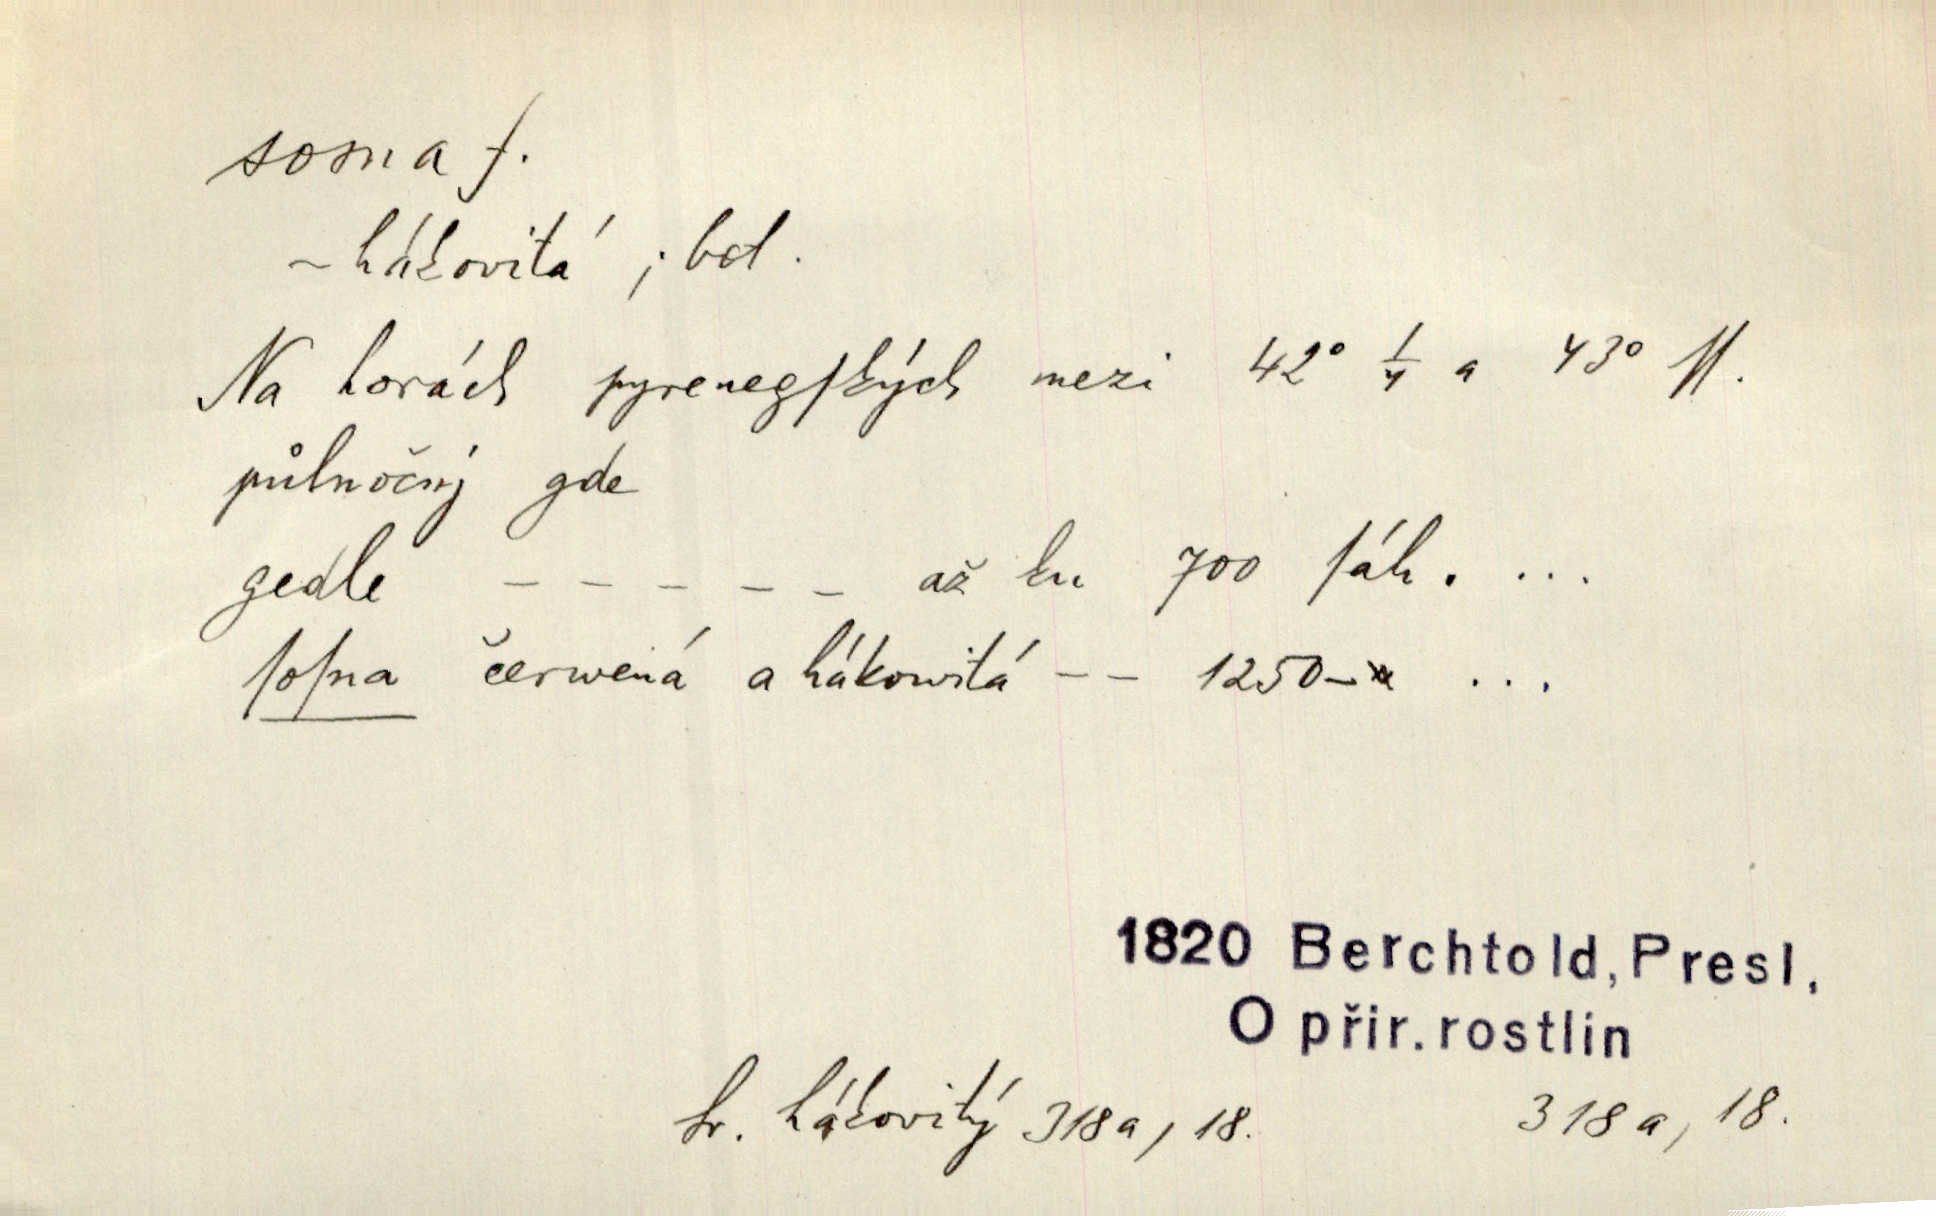 sosna f.
~hákovitá ; bot.
Na horách pyrenegſkých mezi 42° 1/4 a 43° ſſ.
půlnočnj gde
gedle - - - - - až ku 700 ſáh. ...
ſoſna čerwená a hákowitá -- 1250- ...
1820 Berchtold, Presl,
O přir. rostlin
sr. hákovitý 318a, 18. 318a, 18.